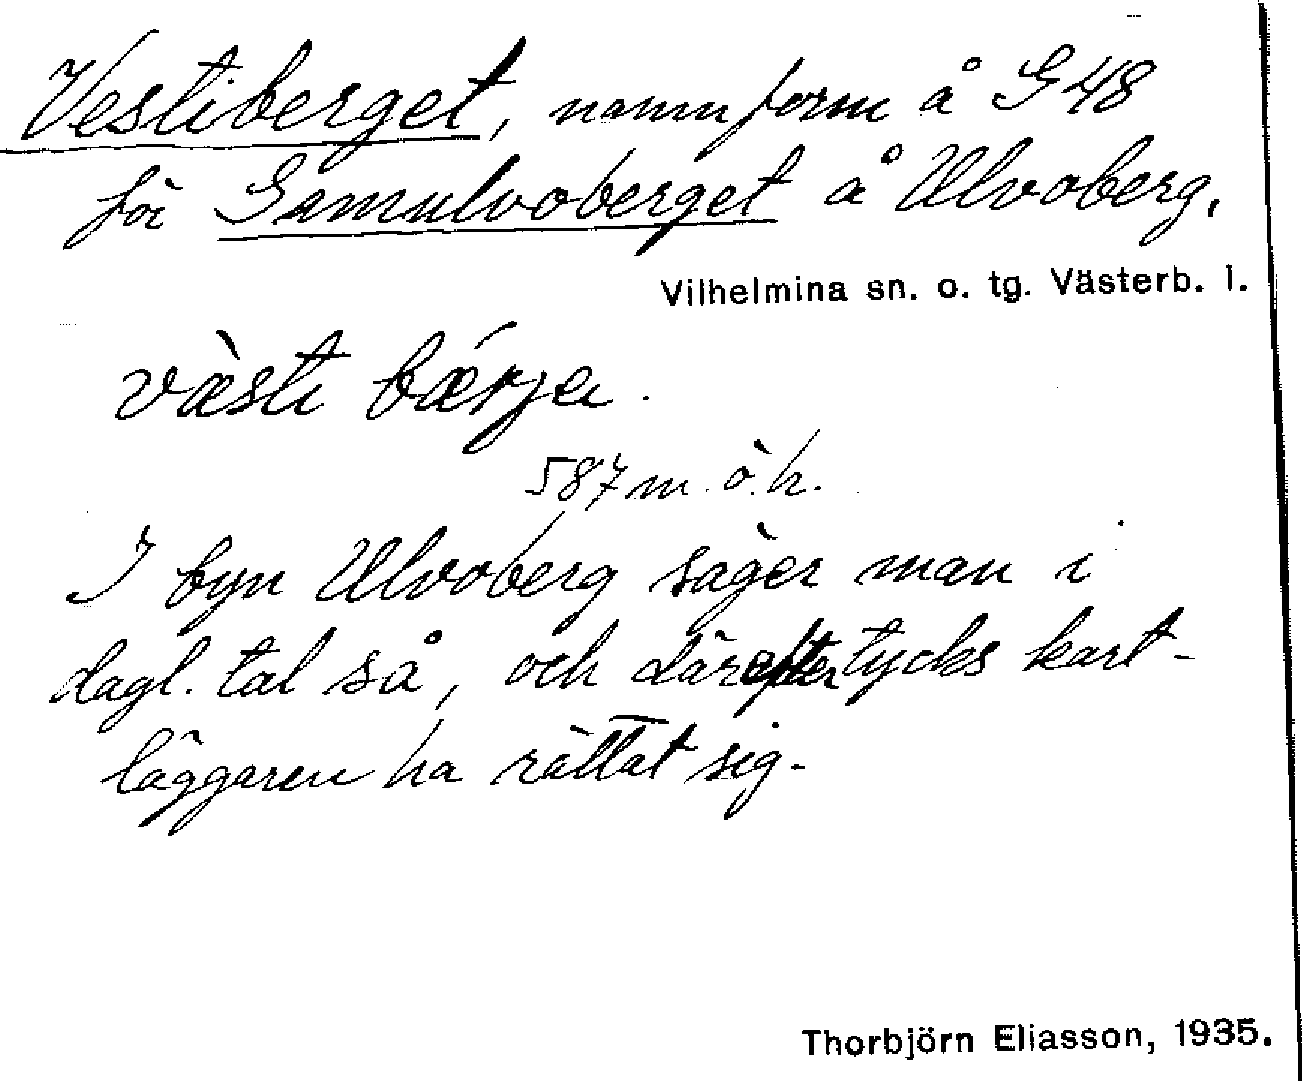 Vestiberget, namnform å G48
för Gamulvoberget å Ulvoberg,
Vilhelmina sn. o. tg. Västerb. l.
væ̀sti bǽrjen.
587 m. ö. h.
I byn Ulvoberg säger man i
dagl. tal så, och därefter tycks kart-
läggaren ha rättat sig.
Thorbjörn Eliasson, 1935.